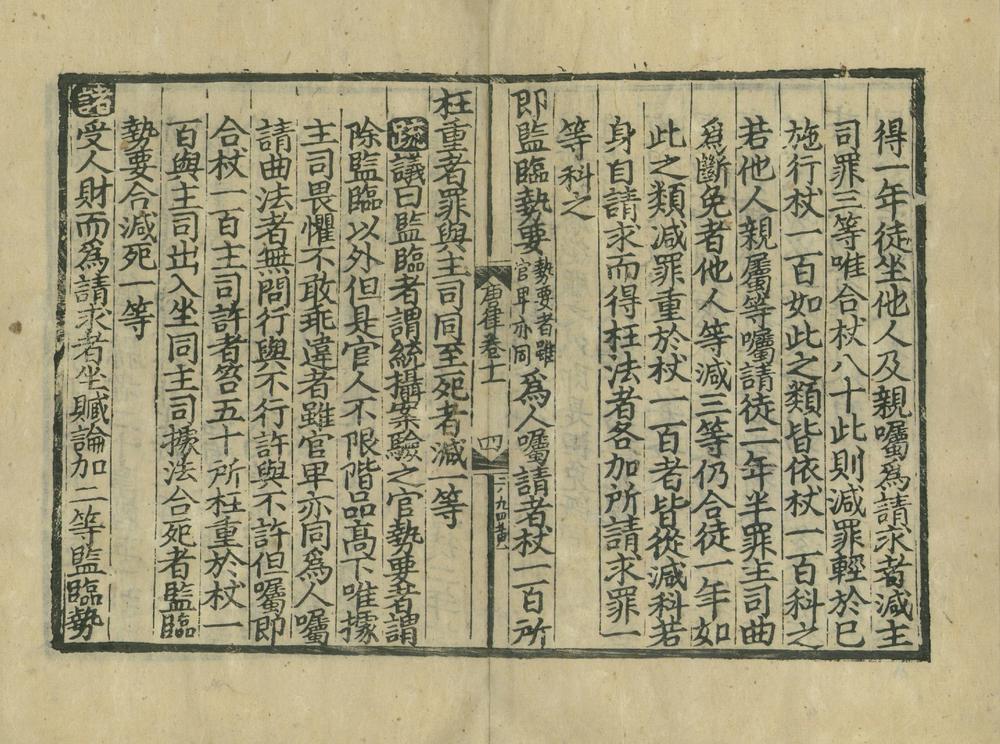 得一年徒坐他人及親囑爲請求者減主
司罪三等唯合杖八十此則減罪輕於已
施行杖一百如此之類皆依杖一百科之
若他人親屬等囑請徒二年半罪主司曲
爲斷免者他人等減三等仍合徒一年如
此之類減罪重於杖一百者皆從減科若
身自請求而得枉法者各加所請求罪一
等科之
即監臨勢要勢要者雖官卑亦同爲人囑請者杖一百所
律卷十一 四
枉重者罪與主司同至死者減一等
疏議曰監臨者謂統攝案驗之官勢要者謂
除監臨以外但是官人不限階品高下唯據
主司畏懼不敢乖違者雖官卑亦同爲人囑
請曲法者無問行與不行許與不許但囑即
合杖一百主司許者笞五十所枉重於杖一
百與主司出入坐同主司據法合死者監臨
勢要合減死一等
諸受人財而爲請求者坐贓論加二等監臨勢